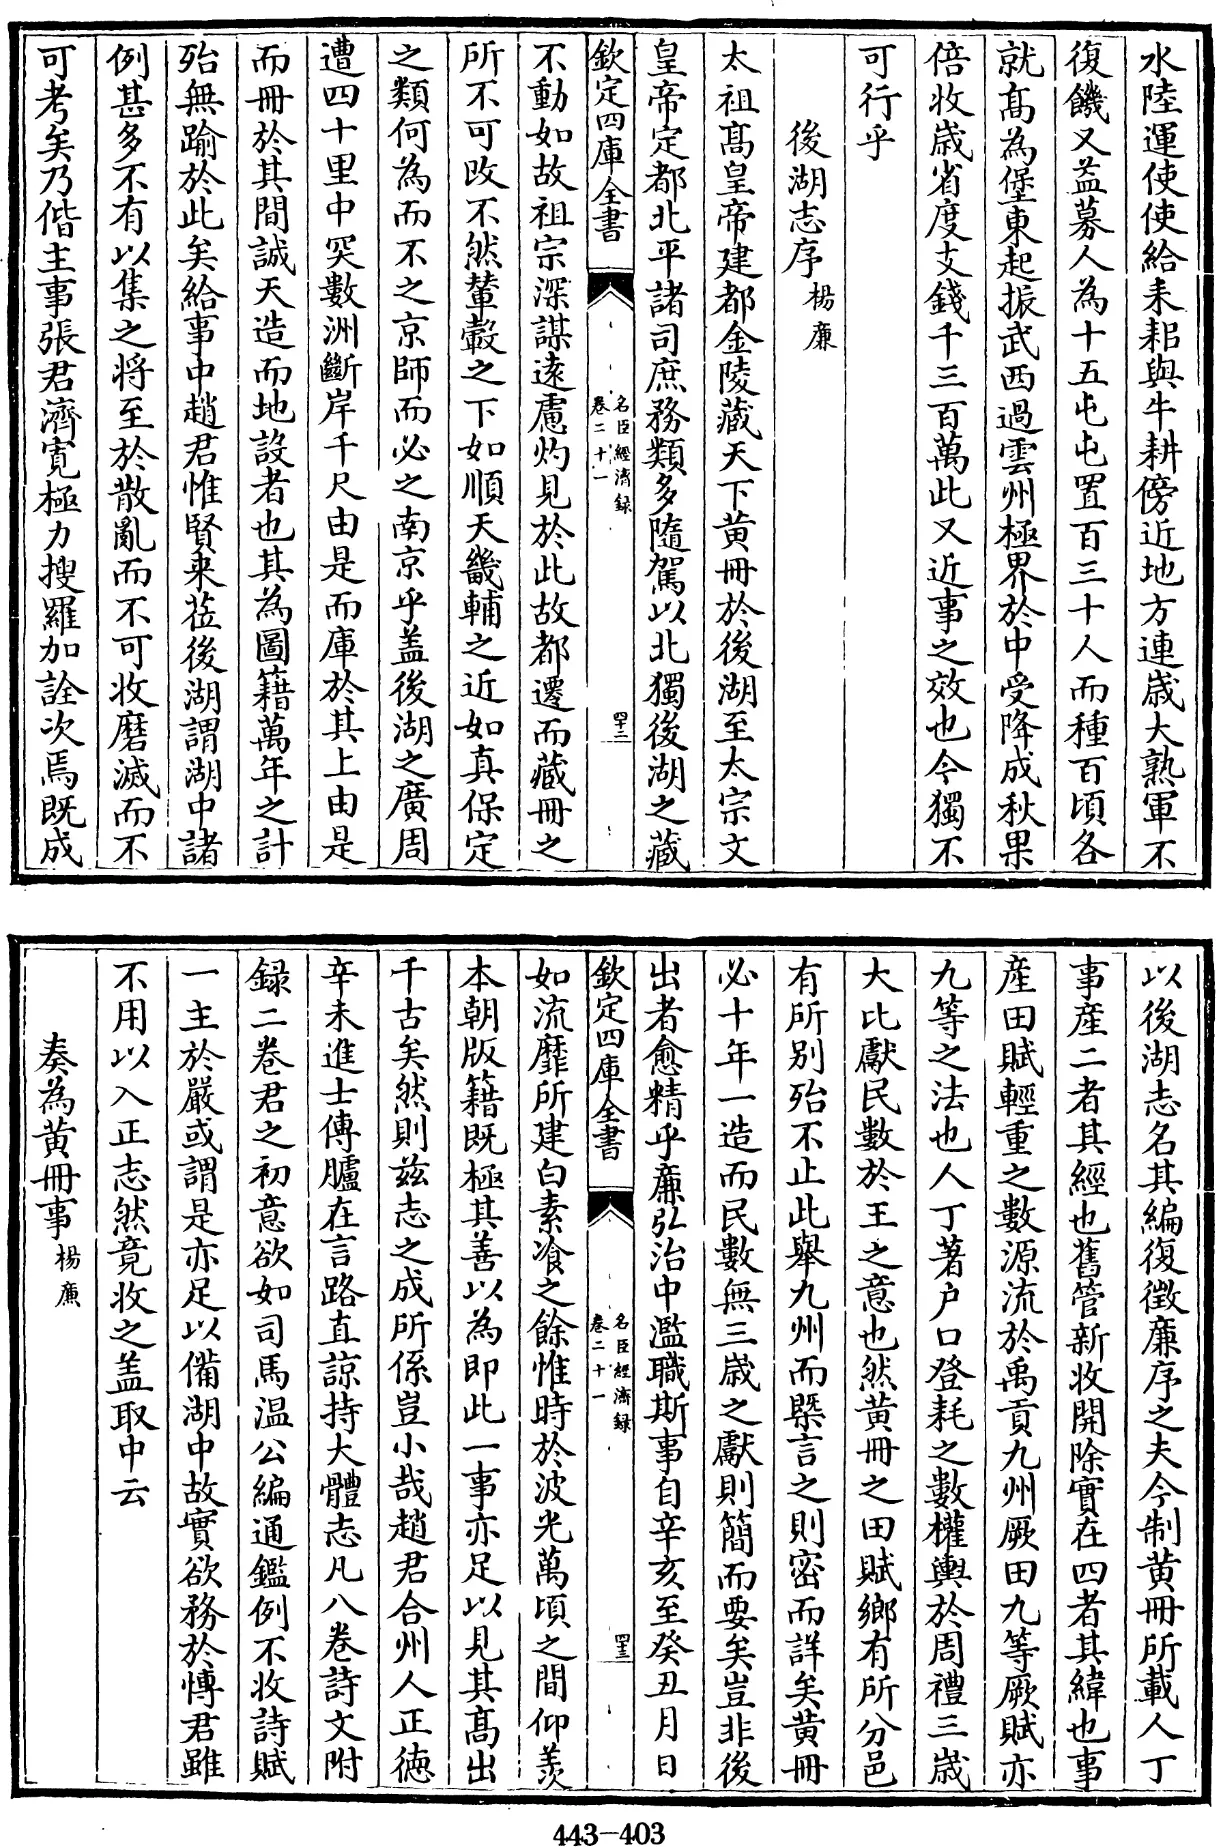 水陸運使使給耒耜與牛耕傍近地方連歳大熟軍不
復饑又益募人為十五屯屯置百三十人而種百頃各
就髙為堡東起振武西過雲州極界於中受降成秋果
倍收歳省度支錢千三百萬此又近事之效也今獨不
可行乎
後湖志序楊廉
太祖髙皇帝建都金陵藏天下黄冊於後湖至太宗文
皇帝定都北平諸司庶務類多隨駕以北獨後湖之藏
欽定四庫全書
名臣經濟録
卷二十一
四十二
不動如故祖宗深謀遠慮灼見於此故都遷而藏冊之
所不可改不然輦轂之下如順天畿輔之近如真保定
之類何為而不之京師而必之南京乎盖後湖之廣周
遭四十里中突數洲斷岸千尺由是而庫於其上由是
而冊於其間誠天造而地設者也其為圖籍萬年之計
殆無踰於此矣給事中趙君惟賢來莅後湖謂湖中諸
例甚多不有以集之将至於散亂而不可收磨滅而不
可考矣乃偕主事張君濟寛極力搜羅加詮次焉既成
以後湖志名其編復徵廉序之夫今制黄冊所載人丁
事産二者其經也舊管新收開除實在四者其緯也事
産田賦輕重之數源流於禹貢九州厥田九等厥賦亦
九等之法也人丁著户口登耗之數權輿於周禮三歳
大比獻民數於王之意也然黄冊之田賦鄉有所分邑
有所别殆不止此舉九州而槩言之則密而詳矣黄冊
必十年一造而民數無三歳之獻則簡而要矣豈非後
出者愈精乎廉弘治中濫職斯事自辛亥至癸丑月日
欽定四庫全書
名臣經濟録
卷二十一
四十三
如流靡所建白素飡之餘惟時於波光萬頃之間仰羡
本朝版籍既極其善以為即此一事亦足以見其髙出
千古矣然則兹志之成所係豈小哉趙君合州人正徳
辛未進士傳臚在言路直諒持大體志凡八卷詩文附
録二卷君之初意欲如司馬温公編通鑑例不收詩賦
一主於嚴或謂是亦足以備湖中故實欲務於愽君雖
不用以入正志然竟收之盖取中云
奏為黄冊事楊廉
443-403